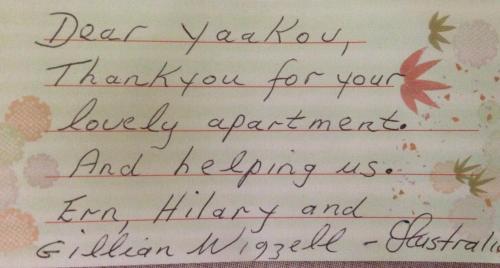 Dear Yaakov,
Thankyou for your
lovely apartment.
And helping us.
Ern, Hilary and
Gillian Wigzell - Australia